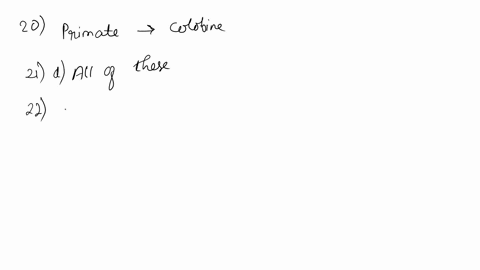 20) Primate → Colobine
21) d) All of these
22)